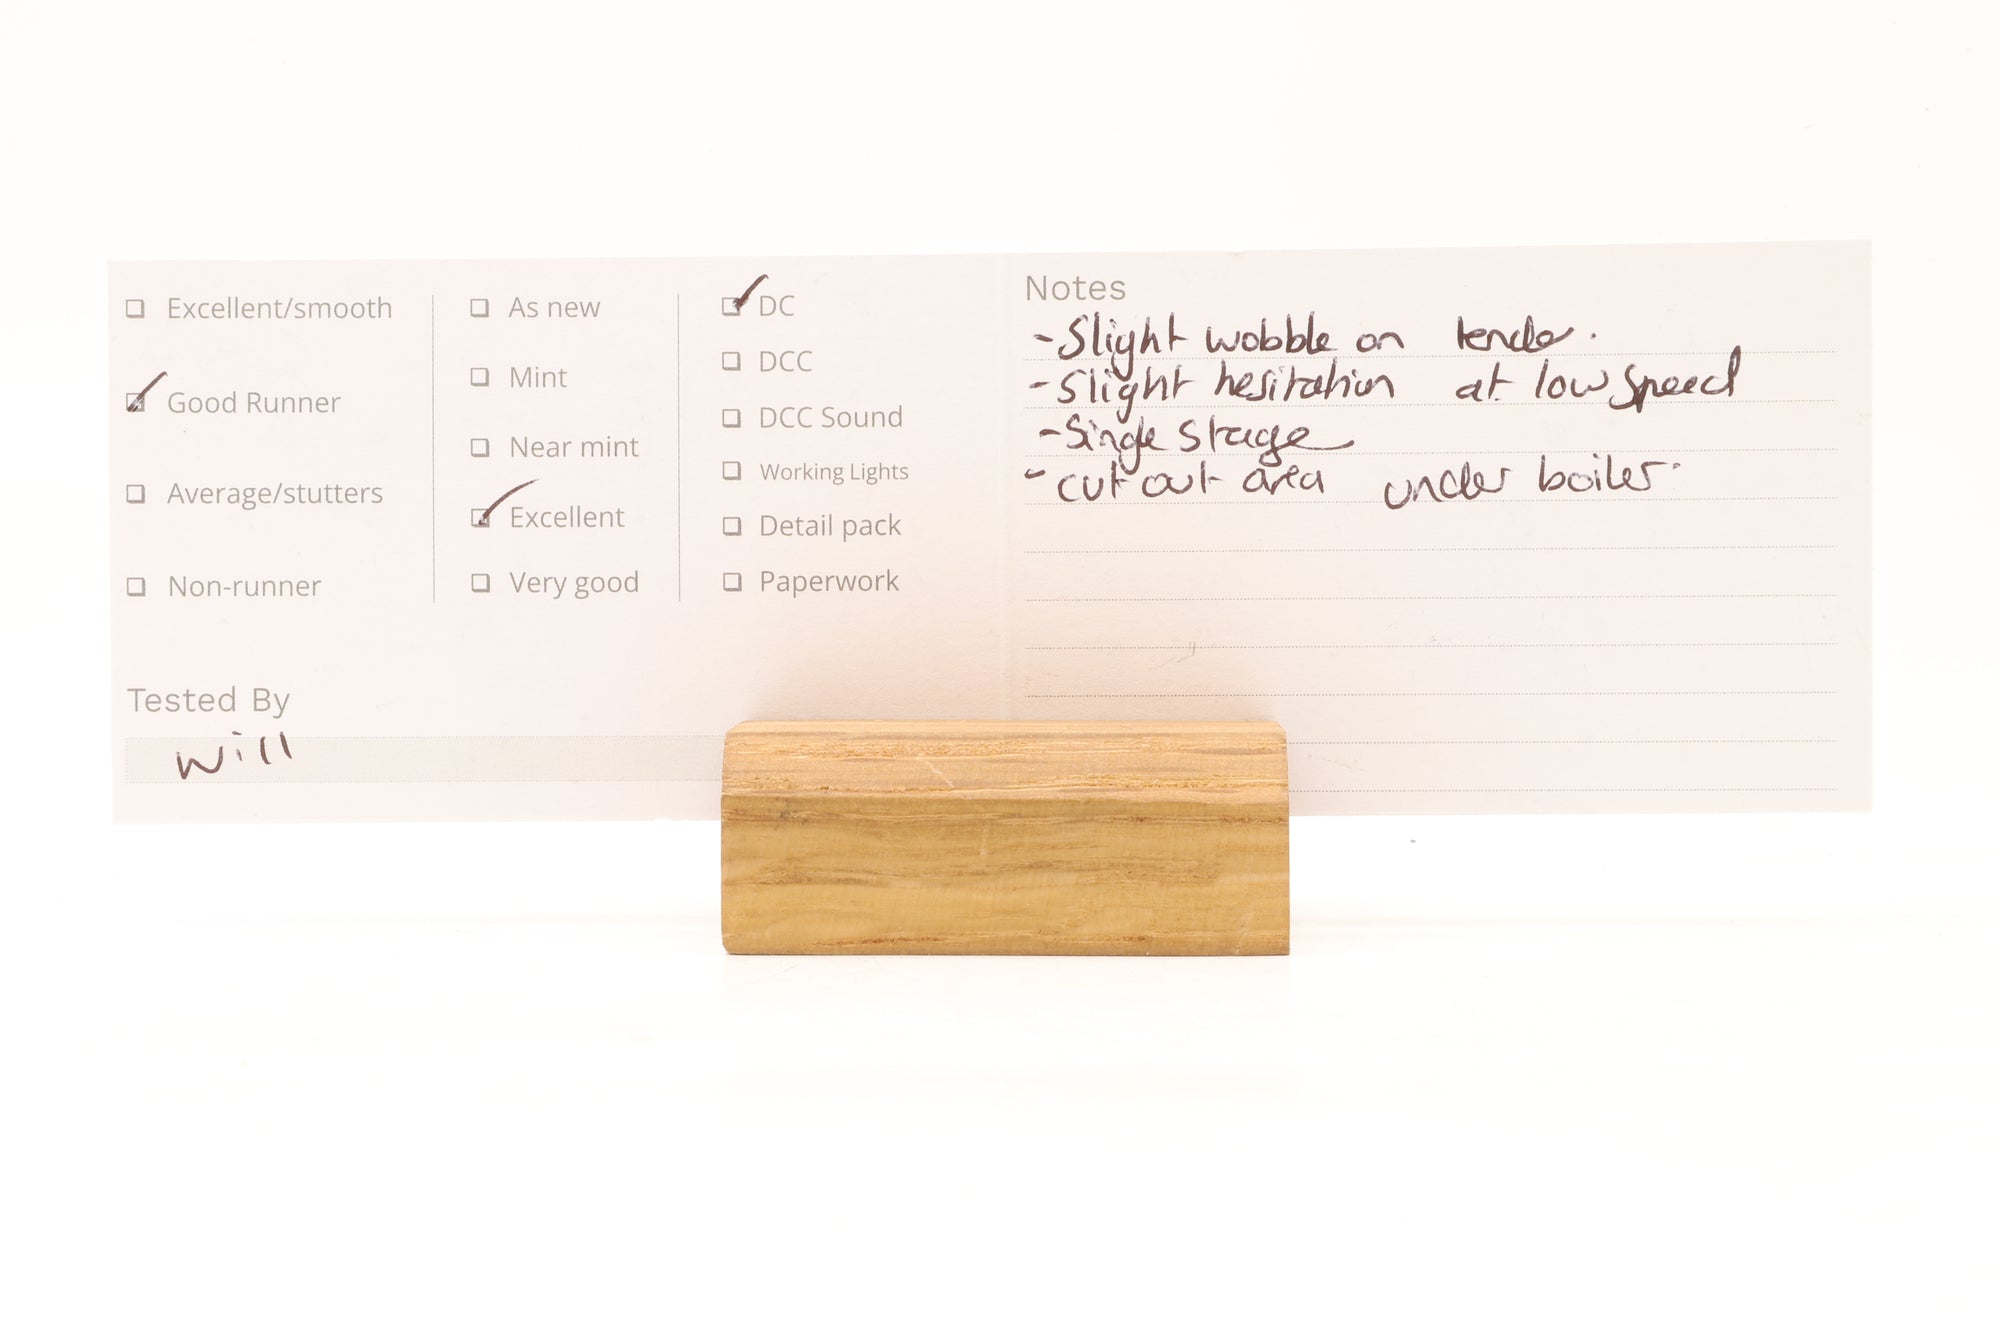 Excellent/smooth
Good Runner
Average/stutters
Non-runner
As new
Mint
Near mint
Excellent
Very good
DC
DCC
DCC Sound
Working Lights
Detail pack
Paperwork
Tested By
Will
Notes
-Slight wobble on tender.
-Slight hesitation at low speed
-Single Stage
-cut out area under boiler.